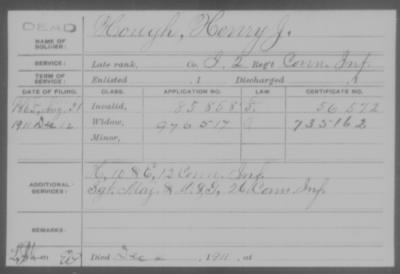 DEAD
NAME OF SOLDIER: Hough, Henry J.
SERVICE: Late rank, Co. I, 2 Reg't Conn. Inf.
TERM OF SERVICE: Enlisted , 1 Discharged , 1
DATE OF FILING. CLASS. APPLICATION NO. LAW. CERTIFICATE NO.
1865, Aug. 21 Invalid, 85868 56572
1911 Dec 12 Widow, 976517 735162
Minor,
ADDITIONAL SERVICES: K, 10 & E, 12 Conn. Inf.
Sgt. Maj. & 26 Conn Inf
REMARKS:
Died Dec 2, 1911, at